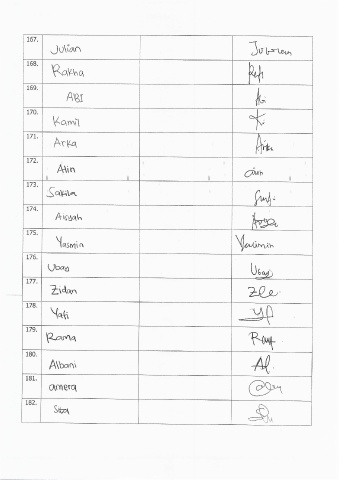 167. Julian
168. Rakha
169. ABI Abi
170. Kamil
171. Arka Arka
172. Alin
173. Sakila
174. Aisyah
175. Yasmin Yasmin
176. Ubay Ubay
177. Zidan
178. Yafi Yf
179. Rama
180. Albani Al
181. amera
182. Siba